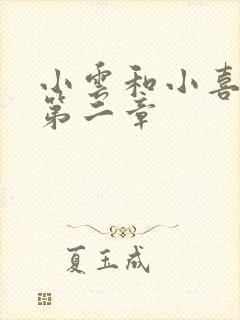 小雲和小喜
第二章
夏玉成